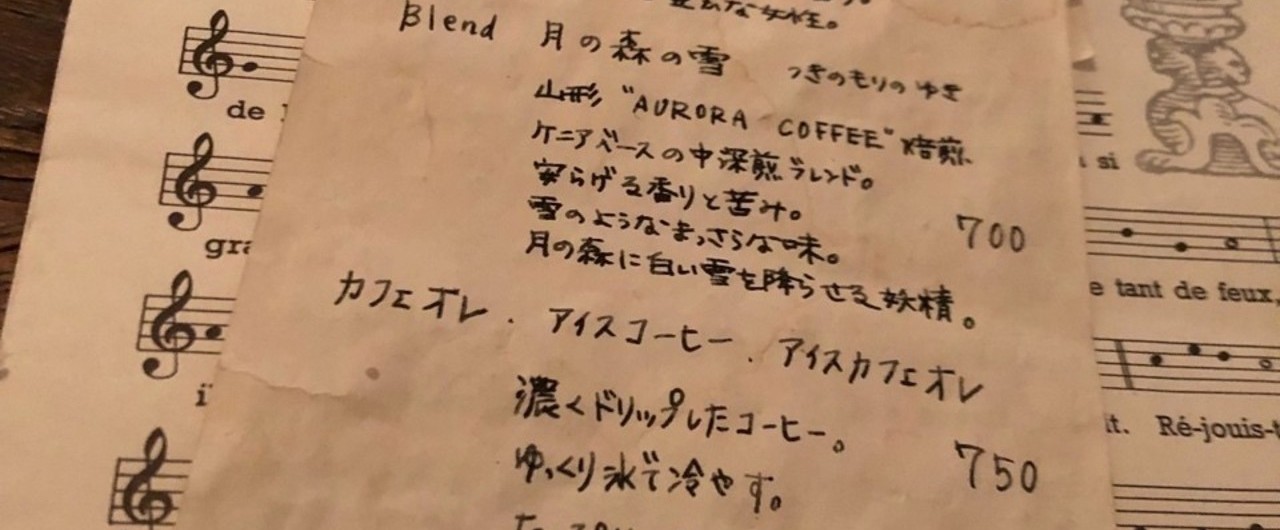 な女性。
Blend 月の森の雪 つきのもりのゆき
山形 "AURORA COFFEE" 焙煎
ケニアベースの中深煎ブレンド。
安らげる香りと苦み。
雪のようなまっさらな味。 700
月の森に白い雪を降らせる妖精。
カフェオレ . アイスコーヒー . アイスカフェオレ
濃くドリップしたコーヒー。
ゆっくり氷で冷やす。 750
de
si
gra
e tant de feux,
ï
it. Ré-jouis-t